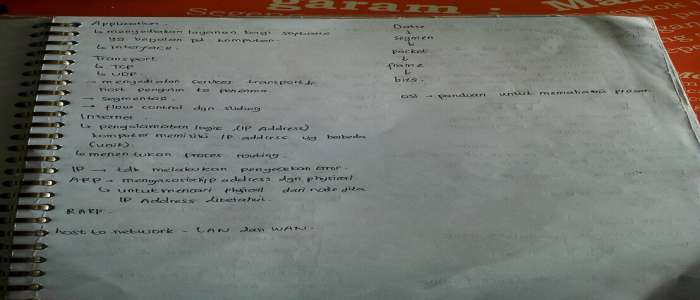 garam : Ma
Application.
↳ menyediakan layanan bagi software
yg berjalan pd komputer.
↳ Interface.
Transport
↳ TCP
↳ UDP
→ menyediakan services transport dr
host pengirim to penerima.
→ segmentasi
→ flow control dgn sliding
Internet
↳ pengalamatan logic (IP Address)
komputer memiliki IP address yg berbeda
(unik).
↳ menentukan proses routing.
IP → tdk melakukan pengecekan error.
ARP → mengasosiasi IP address dgn physical
↳ untuk mencari physical dari node jika
IP Address diketahui.
RARP.
host to network - LAN dan WAN.
Data
↓
segmen
↓
packet
↓
frame
↓
bits.
OSI → panduan untuk memahami proses